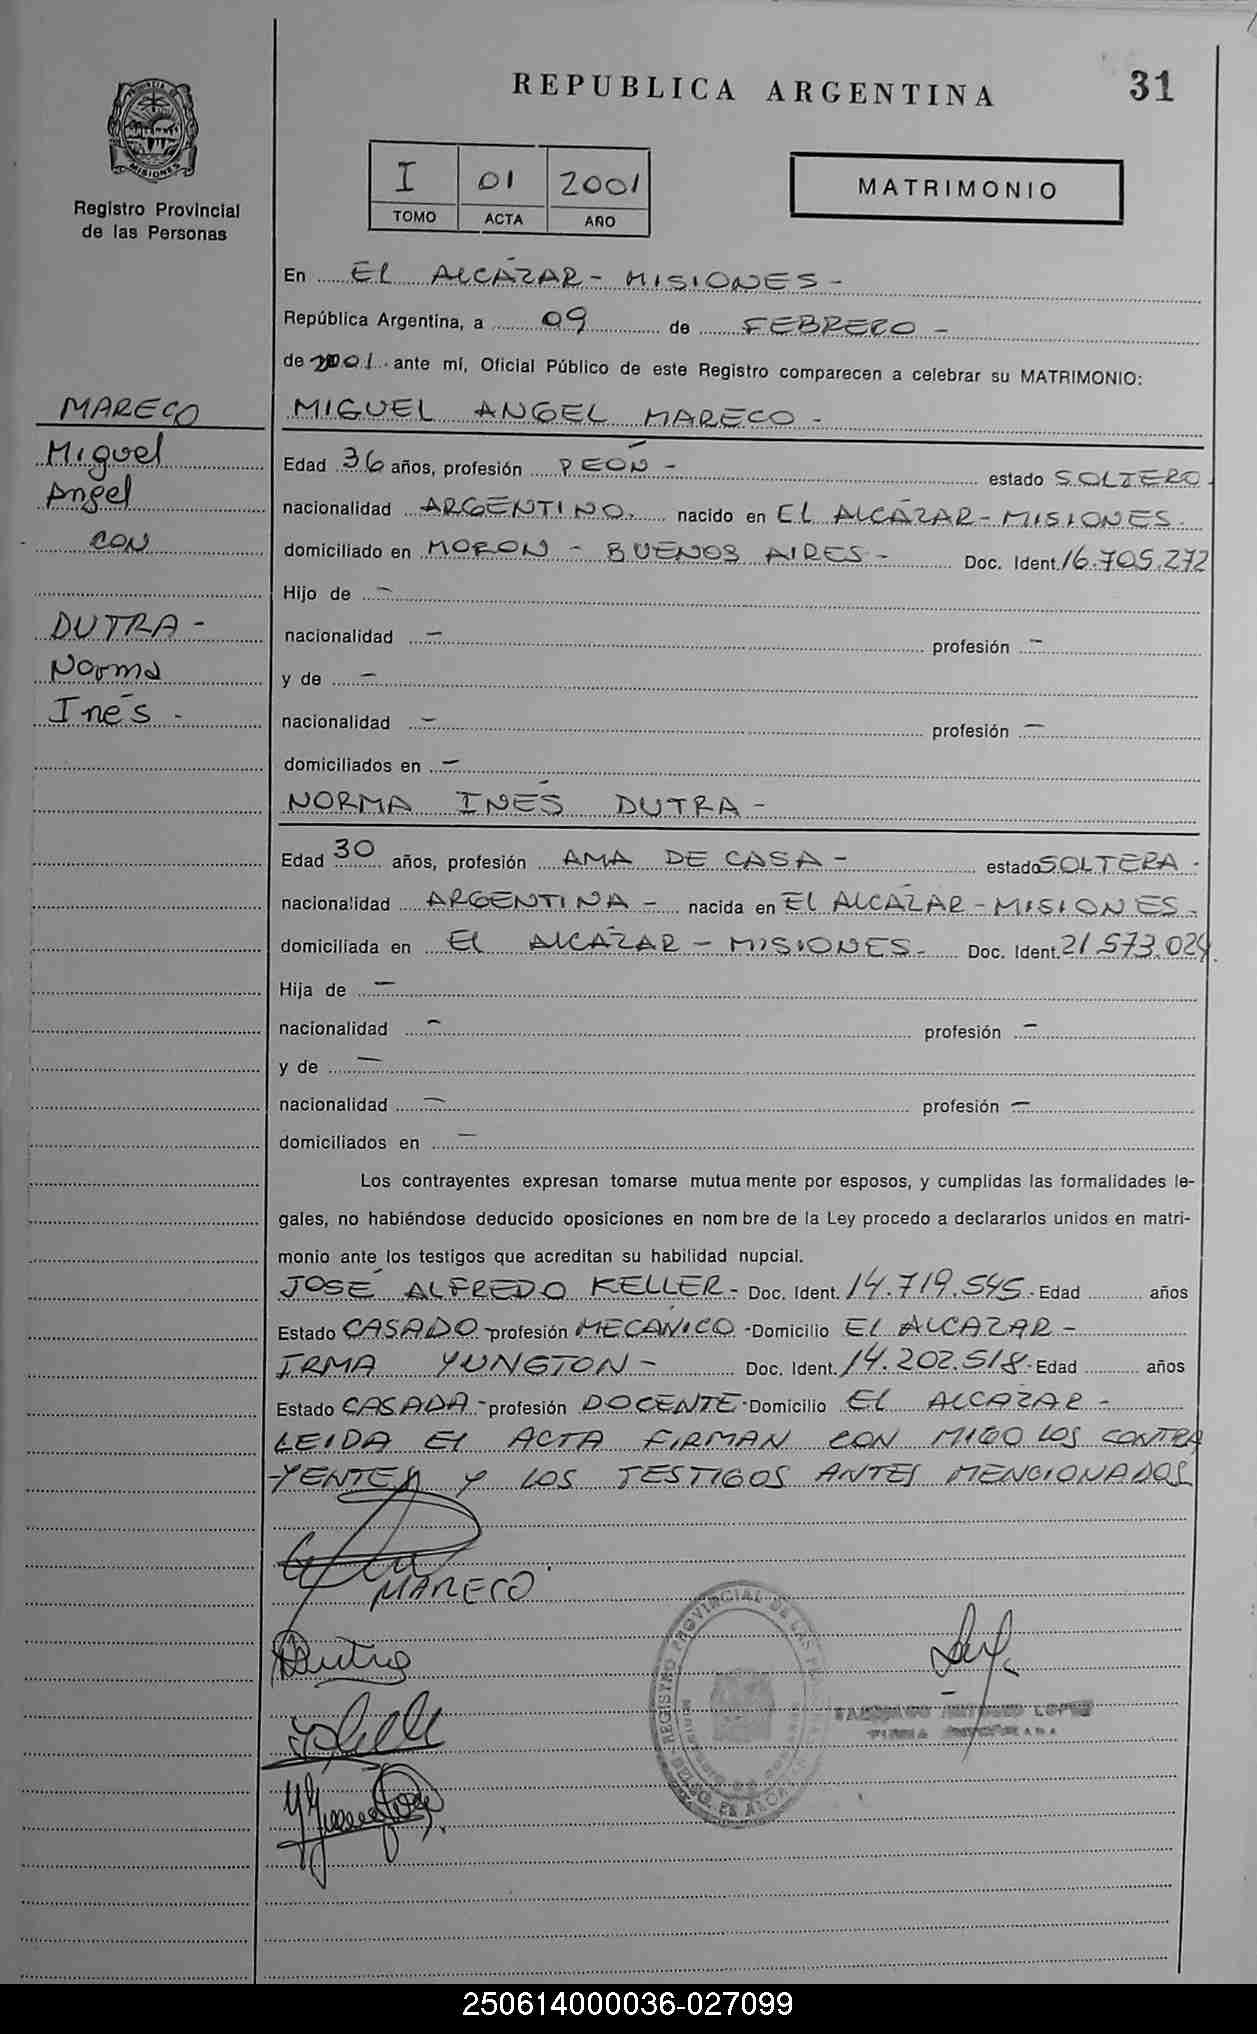 REPUBLICA ARGENTINA
31
MISIONES
Registro Provincial
de las Personas
I 01 2001
TOMO ACTA AÑO
MATRIMONIO
En EL ALCÁZAR - MISIONES -
República Argentina, a 09 de FEBRERO -
de 2001. ante mí, Oficial Público de este Registro comparecen a celebrar su MATRIMONIO:
MARECO
Miguel
Angel
CON
DUTRA -
Norma
Inés -
MIGUEL ANGEL MARECO -
Edad 36 años, profesión PEÓN - estado SOLTERO -
nacionalidad ARGENTINO. nacido en EL ALCÁZAR - MISIONES.
domiciliado en MORON - BUENOS AIRES - Doc. Ident. 16.705.272
Hijo de -
nacionalidad - profesión -
y de -
nacionalidad - profesión -
domiciliados en -
NORMA INÉS DUTRA -
Edad 30 años, profesión AMA DE CASA - estado SOLTERA -
nacionalidad ARGENTINA - nacida en El ALCÁZAR - MISIONES -
domiciliada en El ALCÁZAR - MISIONES - Doc. Ident. 21.573.024.
Hija de -
nacionalidad - profesión -
y de -
nacionalidad - profesión -
domiciliados en -
Los contrayentes expresan tomarse mutua mente por esposos, y cumplidas las formalidades le-
gales, no habiéndose deducido oposiciones en nom bre de la Ley procedo a declararlos unidos en matri-
monio ante los testigos que acreditan su habilidad nupcial.
JOSÉ ALFREDO KELLER - Doc. Ident. 14.719.545 - Edad años
Estado CASADO - profesión MECÁNICO - Domicilio El ALCAZAR -
IRMA YUNGTON - Doc. Ident. 14.202.518 - Edad años
Estado CASADA - profesión DOCENTE - Domicilio El ALCÁZAR -
LEIDA El ACTA FIRMAN CON MIGO LOS CONTRA
-YENTES Y LOS TESTIGOS ANTES MENCIONADOS
MARECO
Dutra
REGISTRO PROVINCIAL DE LAS
LOPEZ
250614000036-027099